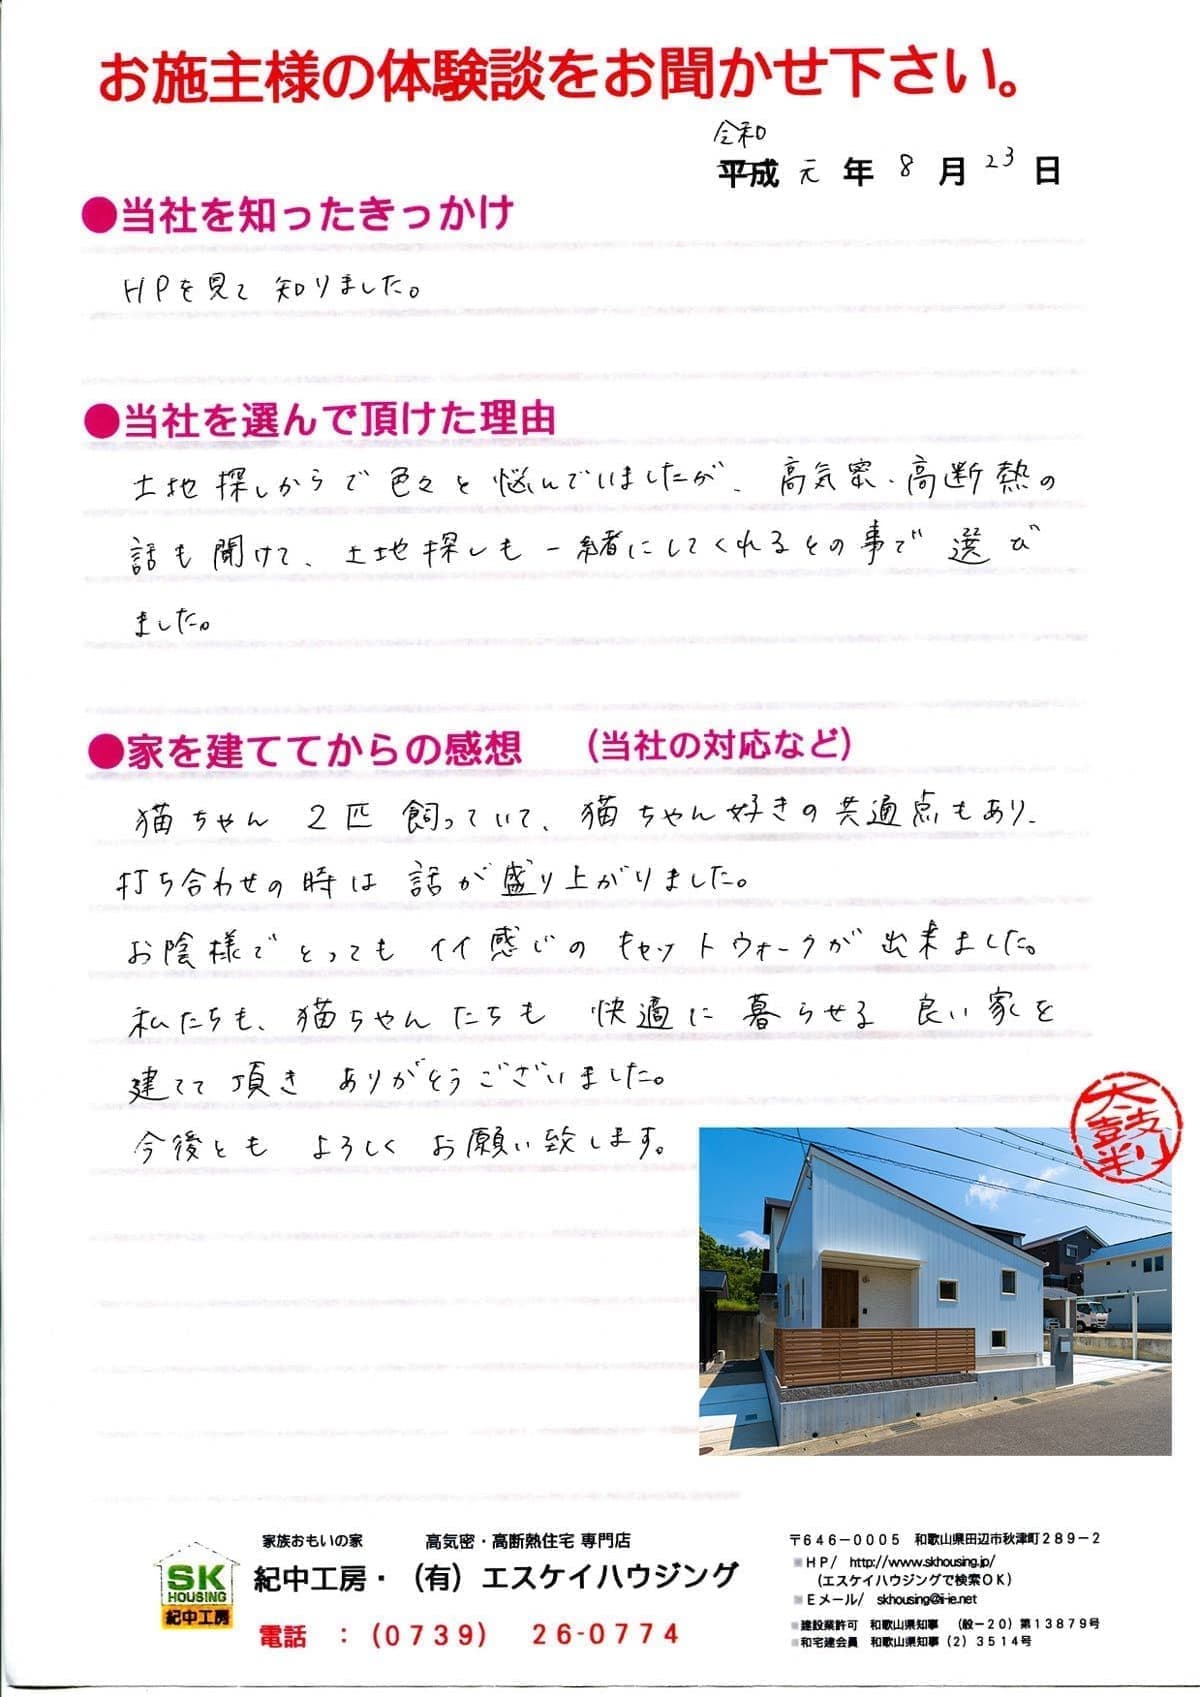 お施主様の体験談をお聞かせ下さい。
令和
平成 元 年 8 月 23 日
●当社を知ったきっかけ
HPを見て 知りました。
●当社を選んで頂けた理由
土地探しからで色々と悩んでいましたが、高気密・高断熱の
話も聞けて、土地探しも一緒にしてくれるとの事で選び
ました。
●家を建ててからの感想 (当社の対応など)
猫ちゃん 2匹 飼っていて、猫ちゃん好きの共通点もあり、
打ち合わせの時は 話が盛り上がりました。
お陰様でとっても イイ感じの キャットウォークが 出来ました。
私たちも、猫ちゃんたちも 快適に 暮らせる 良い家を
建てて頂き ありがとうございました。
今後とも よろしく お願い致します。
太鼓判
家族おもいの家 高気密・高断熱住宅 専門店
SK HOUSING 紀中工房
紀中工房・(有)エスケイハウジング
電話 :(0739) 26-0774
〒646-0005 和歌山県田辺市秋津町289-2
HP/ http://www.skhousing.jp/
(エスケイハウジングで検索OK)
Eメール/ skhousing@i-ie.net
建設業許可 和歌山県知事 (般-20)第13879号
和宅建会員 和歌山県知事(2)3514号